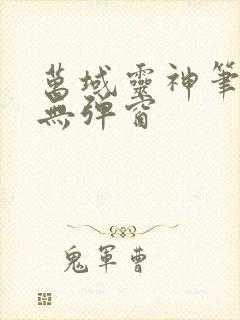 萬域靈神筆
無彈窗
鬼軍曹